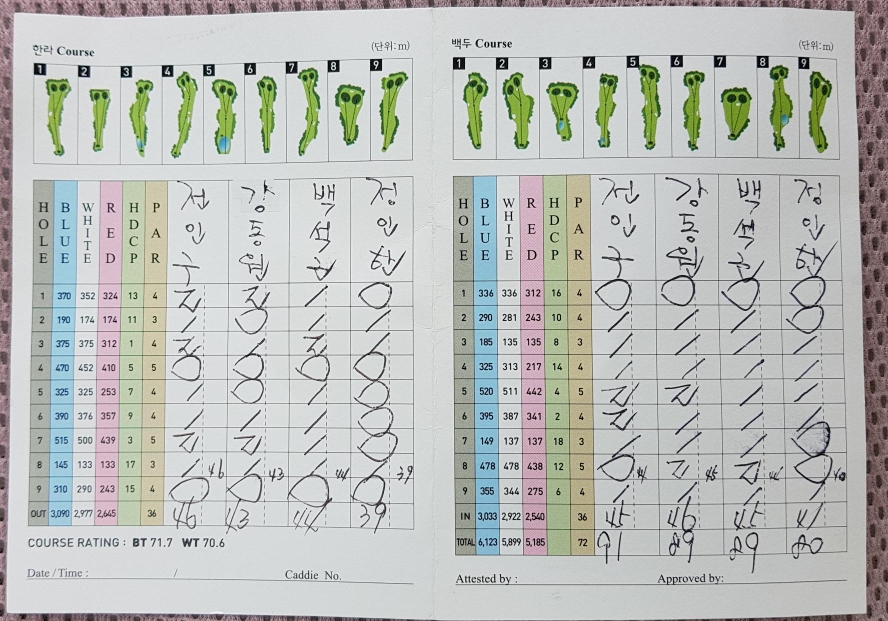 한라 Course (단위:m)
1 2 3 4 5 6 7 8 9
HOLE BLUE WHITE RED HDCP PAR 전인수 강동원 백석 정인
1 370 352 324 13 4 2 2 / 0
2 190 174 174 11 3 / 0 / /
3 375 375 312 1 4 2 / 2 /
4 470 452 410 5 5 0 0 0 0
5 325 325 253 7 4 / 0 / 0
6 390 376 357 9 4 / / / 0
7 515 500 439 3 5 2 2 / 0
8 145 133 133 17 3 / 46 / 43 / 44 / 39
9 310 290 243 15 4 0 0 0 0
OUT 3,090 2,977 2,645 36 46 43 44 39
COURSE RATING : BT 71.7 WT 70.6
Date / Time : / Caddie No.
백두 Course (단위:m)
1 2 3 4 5 6 7 8 9
HOLE BLUE WHITE RED HDCP PAR 전인수 강동원 백석 정인
1 336 336 312 16 4 0 0 0 0
2 290 281 243 10 4 / / / 0
3 185 135 135 8 3 / / / /
4 325 313 217 14 4 / / / /
5 520 511 442 4 5 2 2 / /
6 395 387 341 2 4 2 / / /
7 149 137 137 18 3 / / / 0
8 478 478 438 12 5 0 44 2 45 2 44 0 40
9 355 344 275 6 4 / / / /
IN 3,033 2,922 2,540 36 45 46 45 41
TOTAL 6,123 5,899 5,185 72 91 89 89 80
Attested by : Approved by: